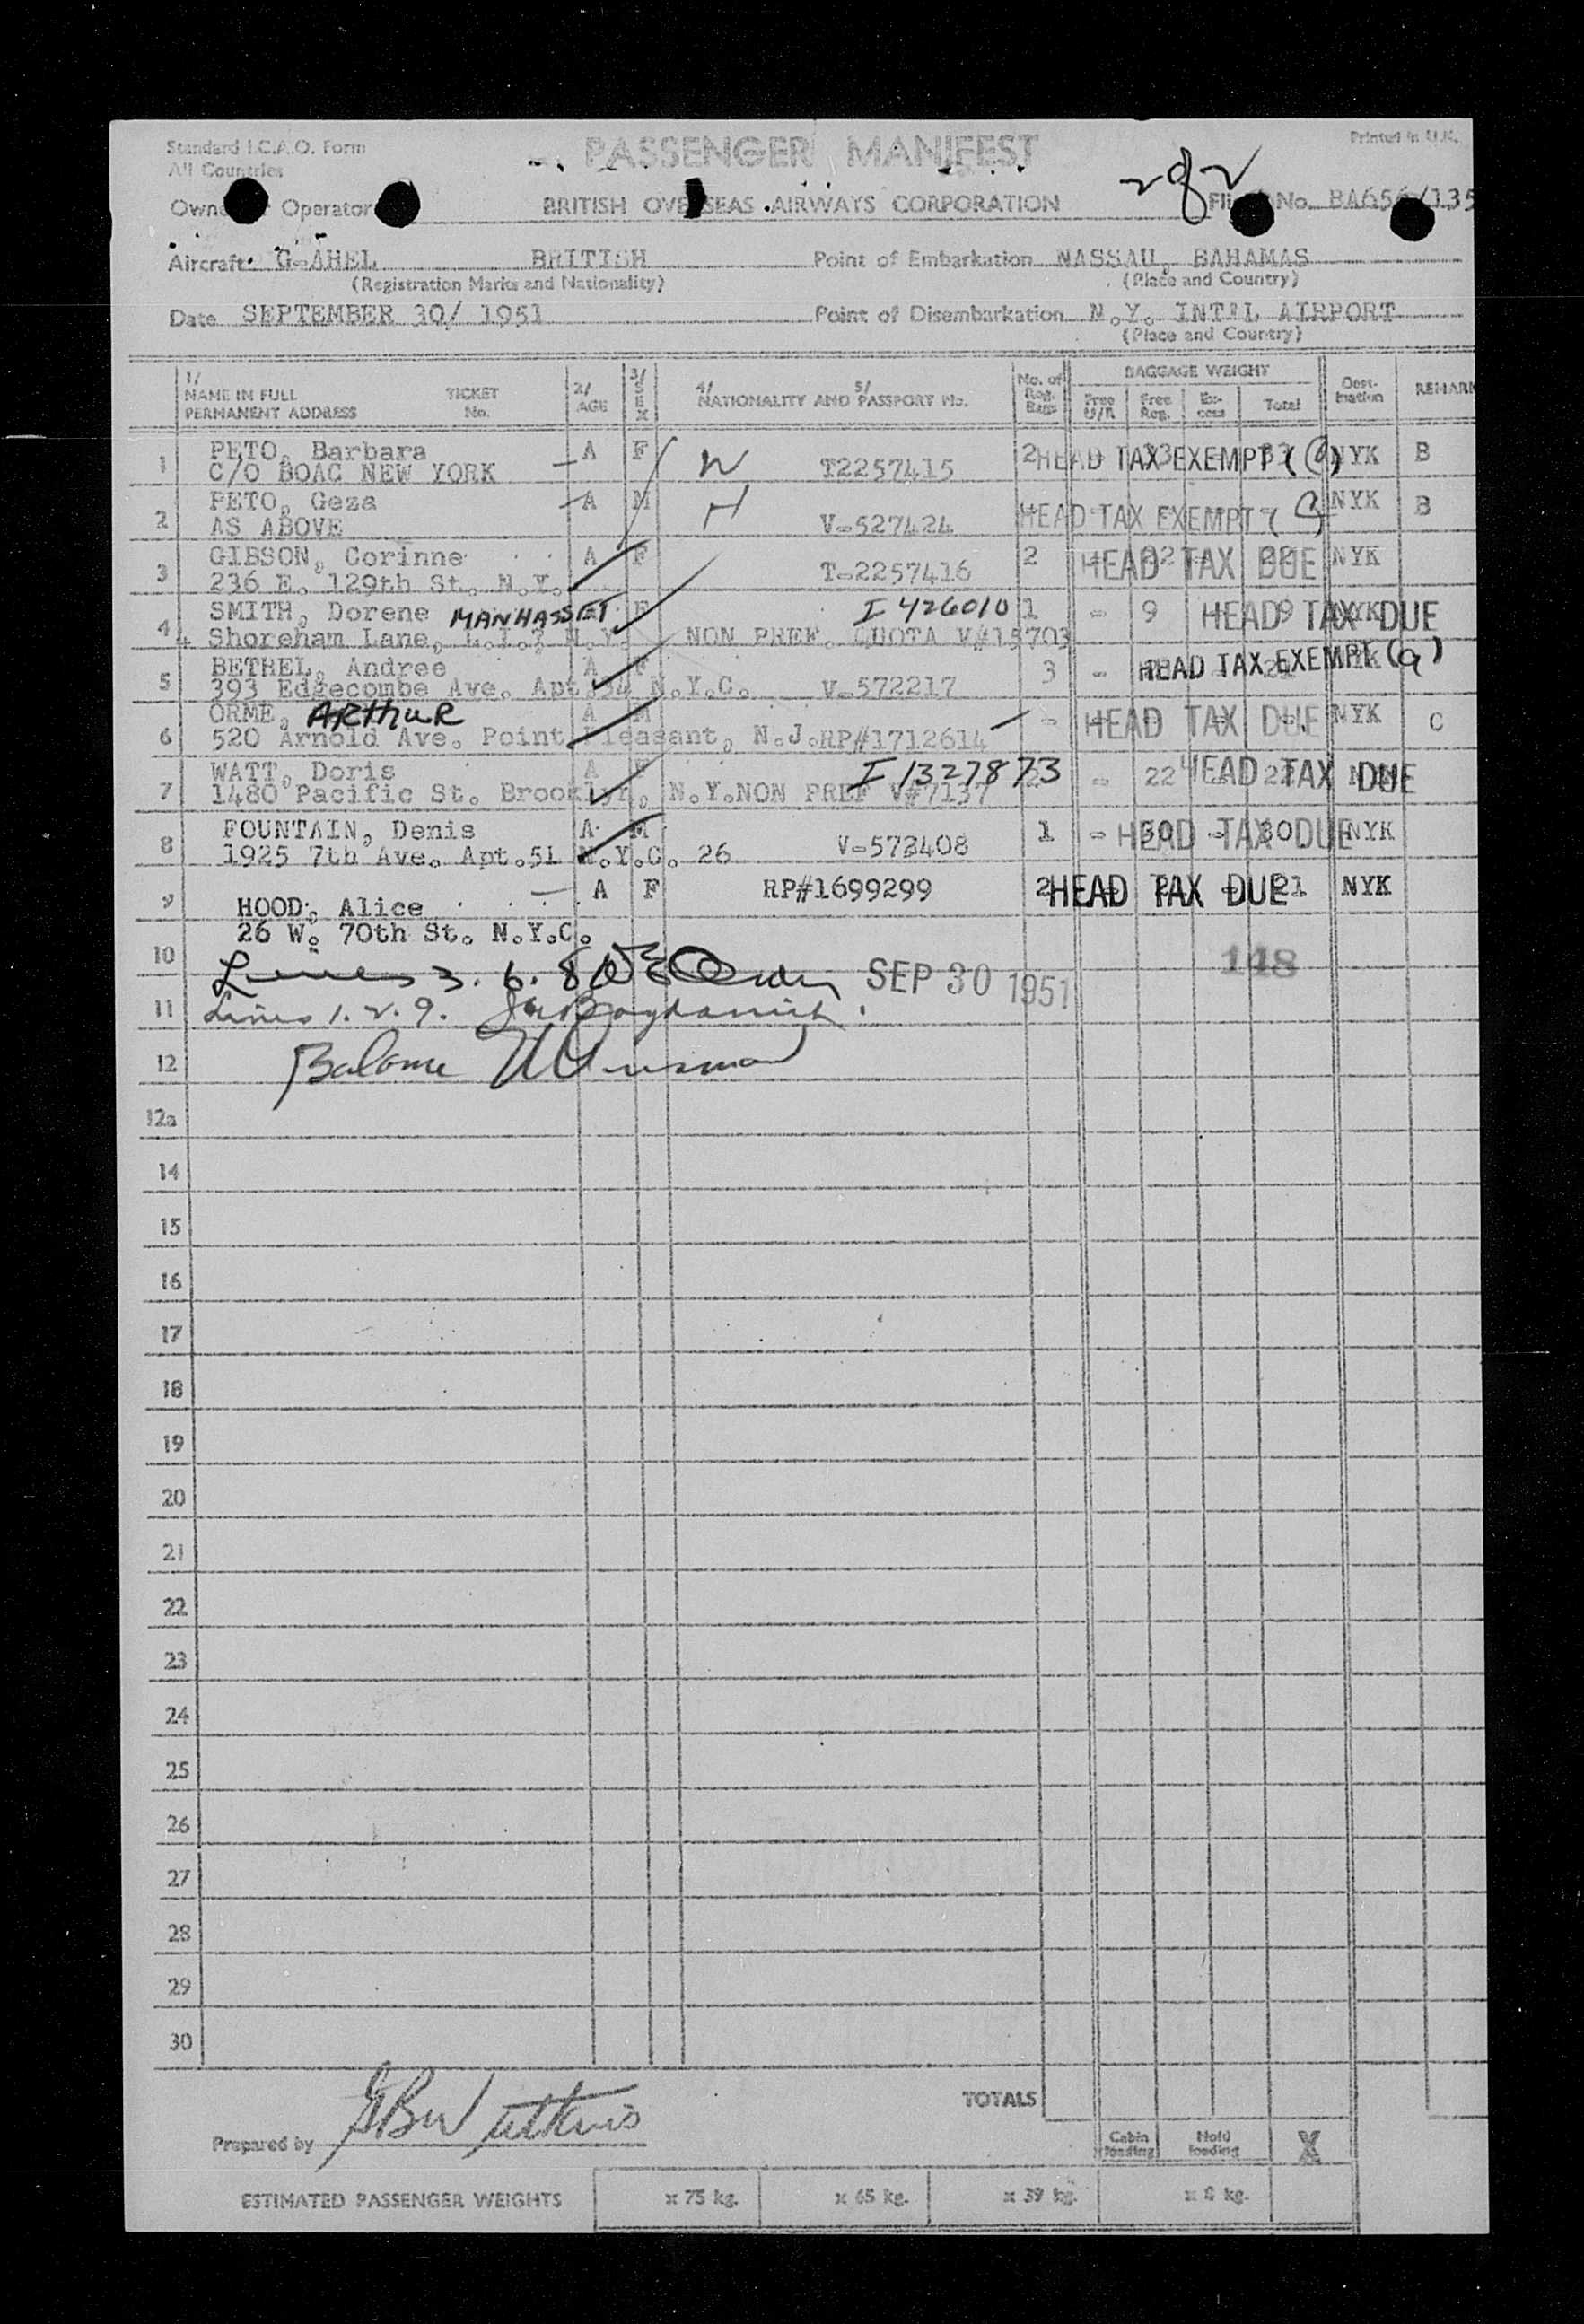 Standard I.C.A.O. Form
All Countries
PASSENGER MANIFEST
Printed in U.K.
282
Operator BRITISH OVERSEAS AIRWAYS CORPORATION
No. BA656/135
Aircraft G-AHEL BRITISH Point of Embarkation NASSAU, BAHAMAS
(Registration Marks and Nationality) (Place and Country)
Date SEPTEMBER 30/ 1951 Point of Disembarkation N.Y. INT'L AIRPORT
(Place and Country)
1/ NAME IN FULL PERMANENT ADDRESS TICKET No. 2/ AGE 3/ SEX 4/ NATIONALITY AND 5/ PASSPORT No. No. of Reg. Bags BAGGAGE WEIGHT Free U/R Free Reg. Ex-cess Total Dest-ination REMARK
1 PETO, Barbara A F T2257415 2 HEAD TAX EXEMPT NYK B
C/O BOAC NEW YORK
2 PETO, Geza A M V-527424 HEAD TAX EXEMPT NYK B
AS ABOVE
3 GIBSON, Corinne A F T-2257416 2 HEAD TAX DUE NYK
236 E. 129th St. N.Y.
4 SMITH, Dorene MANHASSET F I 426010 1 - 9 HEAD TAX DUE
4 Shoreham Lane, L.I., N.Y. NON PREF. QUOTA V#15703
5 BETHEL, Andree A F 3 - HEAD TAX EXEMPT (a)
393 Edgecombe Ave. Apt. N.Y.C. V-572217
6 ORME, ARTHUR A M - HEAD TAX DUE NYK C
520 Arnold Ave. Point Pleasant, N.J. RP#1712614
7 WATT, Doris A F I 1327873 - 22 HEAD TAX DUE
1480 Pacific St. Brooklyn, N.Y. NON PREF V#7137
8 FOUNTAIN, Denis A M V-573408 1 - 30 - 30 HEAD TAX DUE NYK
1925 7th Ave. Apt.5L N.Y.C. 26
9 HOOD, Alice A F RP#1699299 2 HEAD TAX DUE 21 NYK
26 W. 70th St. N.Y.C.
10 Lines 3. 6. 8 SEP 30 1951 148
11 Lines 1. 2. 9.
12
12a
14
15
16
17
18
19
20
21
22
23
24
25
26
27
28
29
30
TOTALS
Prepared by
Cabin loading Hold loading X
ESTIMATED PASSENGER WEIGHTS x 75 kg. x 65 kg. x 39 kg. x 8 kg.